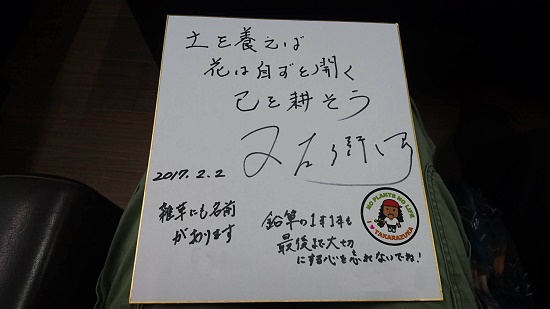 土を養えば
花は自ずと開く
己を耕そう
又右衛門
2017.2.2
雑草にも名前
があります
鉛筆の1本1本も
最後まで大切
にする心を忘れないでね!
NO PLANTS NO LIFE
I ♥ TAKARAZUKA